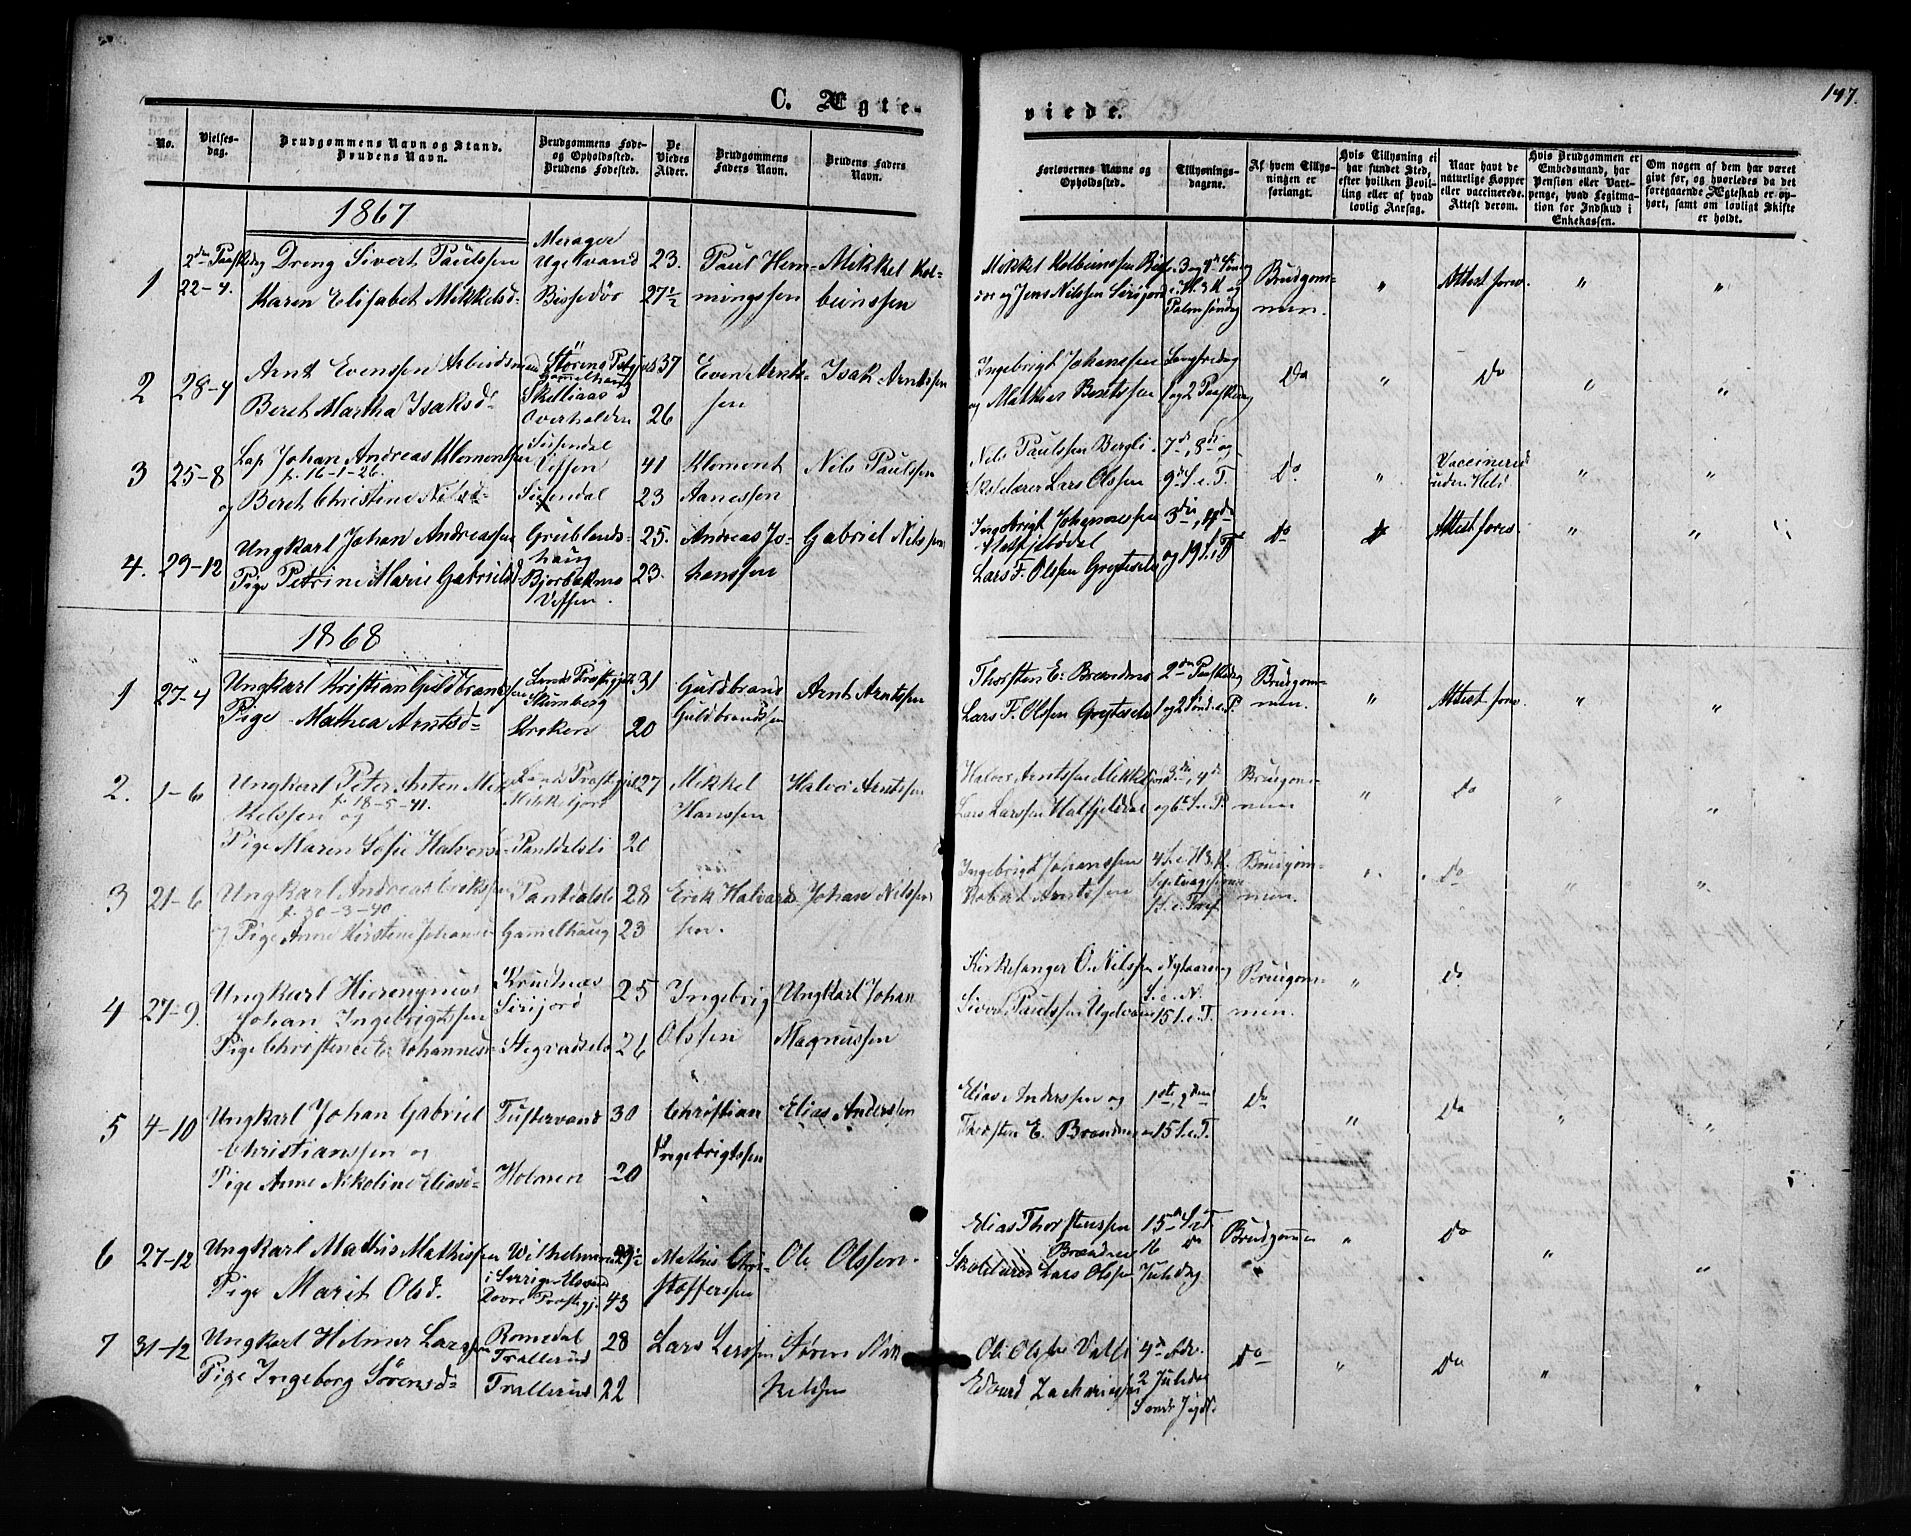 C. Ægte-
viede.
147.
No.
Vielses-
dag.
Brudgommens Navn og Stand.
Brudens Navn.
Brudgommens Føde-
og Opholdssted.
Brudens Fødested.
De
Viedes
Alder.
Brudgommens
Faders Navn.
Brudens Faders
Navn.
Forlovernes Navne og
Opholdssted.
Tillysnings-
dagene.
Af hvem Tillys-
ningen er
forlangt.
Hvis Tillysning ei
har fundet Sted,
efter hvilken Bevil-
ling eller af hvad
lovlig Aarsag.
Naar havt de
naturlige Kopper
eller vaccinerede.
Attest derom.
Hvis Brudgommen er
Embedsmand, har
Pension eller Vart-
penge, hvad Legitima-
tion for Indskud i
Enkekassen.
Om nogen af dem har været
gift før, og hvorledes da det
foregaaende Ægteskab er op-
hørt, samt om lovligt Skifte
er holdt.
1867
1
2den Paaskedag
22-4.
Dreng Sivert Paulssen
Karen Elisabet Mikkelsd.
Ugelvand
23.
27½
Paul Hem-
mingssen
Mikkel Kol-
beinssen
Mikkel Kolbeinssen
og Jens Nilssen Sirijord
Palmesøndag
Brudgom-
men.
"
Attest forev.
"
"
2
28-4
Arnt Evenssen Arbeidsmand
Beret Martha Isaksd.
Støren Pstgjeld
Gamelhaug
Overhalden
37
26
Even Arnts-
sen
Isak Arntssen
Ingebrigt Johanssen
og Mathias Berntssen
Langfredag
1 og 2 Paaskedag
Do
"
Do
"
"
3
25-8
Lap Johan Andreas Klemetsen
f. 16-1-26.
og Beret Christine Nilsd.
Susendal
Vefsen
Susendal
41
23
Klemet
Arnessen
Nils Paulssen
Nils Paulssen Bergli
Skolelærer Lars Olssen
7de, 8de og
9de S. e. T.
Do.
"
Vaccinered
"
"
4.
29-12
Ungkarl Johan Andreassen
Pige Petrine Marie Gabrielsd.
Grublands-
haug
Vefsen.
25.
23.
Andreas Jo-
hanssen
Gabriel Nilssen
Ingebrigt Johannessen
Lars F. Olssen
og 19 S. e. T.
Do
Attest forev.
"
"
1868
1
27-4
Ungkarl Kristian Guldbrandsen
Pige Mathea Arntsd.
Kroken
31
20
Guldbrand
Guldbrandssen
Arnt Arntssen
Thorsten E. Brændmo
Lars F. Olssen
2den Paaskedag
1 og 2 Sønd. e. P.
Brudgom-
men.
"
Attest forev.
"
"
2.
1-6
Ungkarl Peter Anten Mik-
kelssen og
f. 18-5-41.
Pige Maren Sofie Halvorsd.
Pantdalsli
27
20
Mikkel
Hanssen
Halvor Arntssen
Halvor Arntssen
Lars Larssen Hatfjeldal
3die, 4de
og 6te S. e. P.
Brudgom-
men
"
Do
"
"
3
21-6
Ungkarl Andreas Erikssen
f. 30-3-40
Pige Anne Kirstine Johansd.
Pantdalsli
Gamelhaug
28
23
Erik Halvards-
sen.
Johan Nilssen
Ingebrigt Johanssen
Robert Arntssen
4 S. e. H. 3 K.
Brudgom-
men.
"
Do
"
"
4
27-9.
Ungkarl Hieronymus
Johan Ingebrigtssen
Pige Christence E. Johannesd.
Krudtnæs
Sirijord
25
26
Ingebrig
Olssen
Ungkarl Johan
Magnussen
Kirkesanger O. Nilssen
Sivert Paulssen Ugelvand
Nytaarsdag
S. e. N.
15 S. e. T.
Brudgom-
men.
"
Do
5
4-10
Ungkarl Johan Gabriel
Christianssen og
Pige Anne Nikoline Eliasd.
Tustervand
Holmen
30
20
Christian
Ingebrigtssen
Elias Anderssen
Elias Anderssen og
Thorsten E. Brændmo
1ste, 2den
15 S. e. T.
Do
"
Do
"
"
6
27-12
Ungkarl Mathis Mathissen
Pige Marit Olsd.
Dovre Præstegj.
43
Mathis Chri-
stofferssen
Ole Olssen.
Elias Thorstenssen
Brændmo
Skolelærer Lars Olssen
15de S. e. T.
16 Do
Juledag
Brudgommen
"
Do
"
"
7
31-12
Ungkarl Hilmer Larssen
Pige Ingeborg Sørensd.
Romedal
Trallerud
Trallerud
28
22
Lars Larssen
Søren Mik-
kelssen
Edvard Zachariassen
4de Adv.
2 Juledag
Do
"
Do
"
"